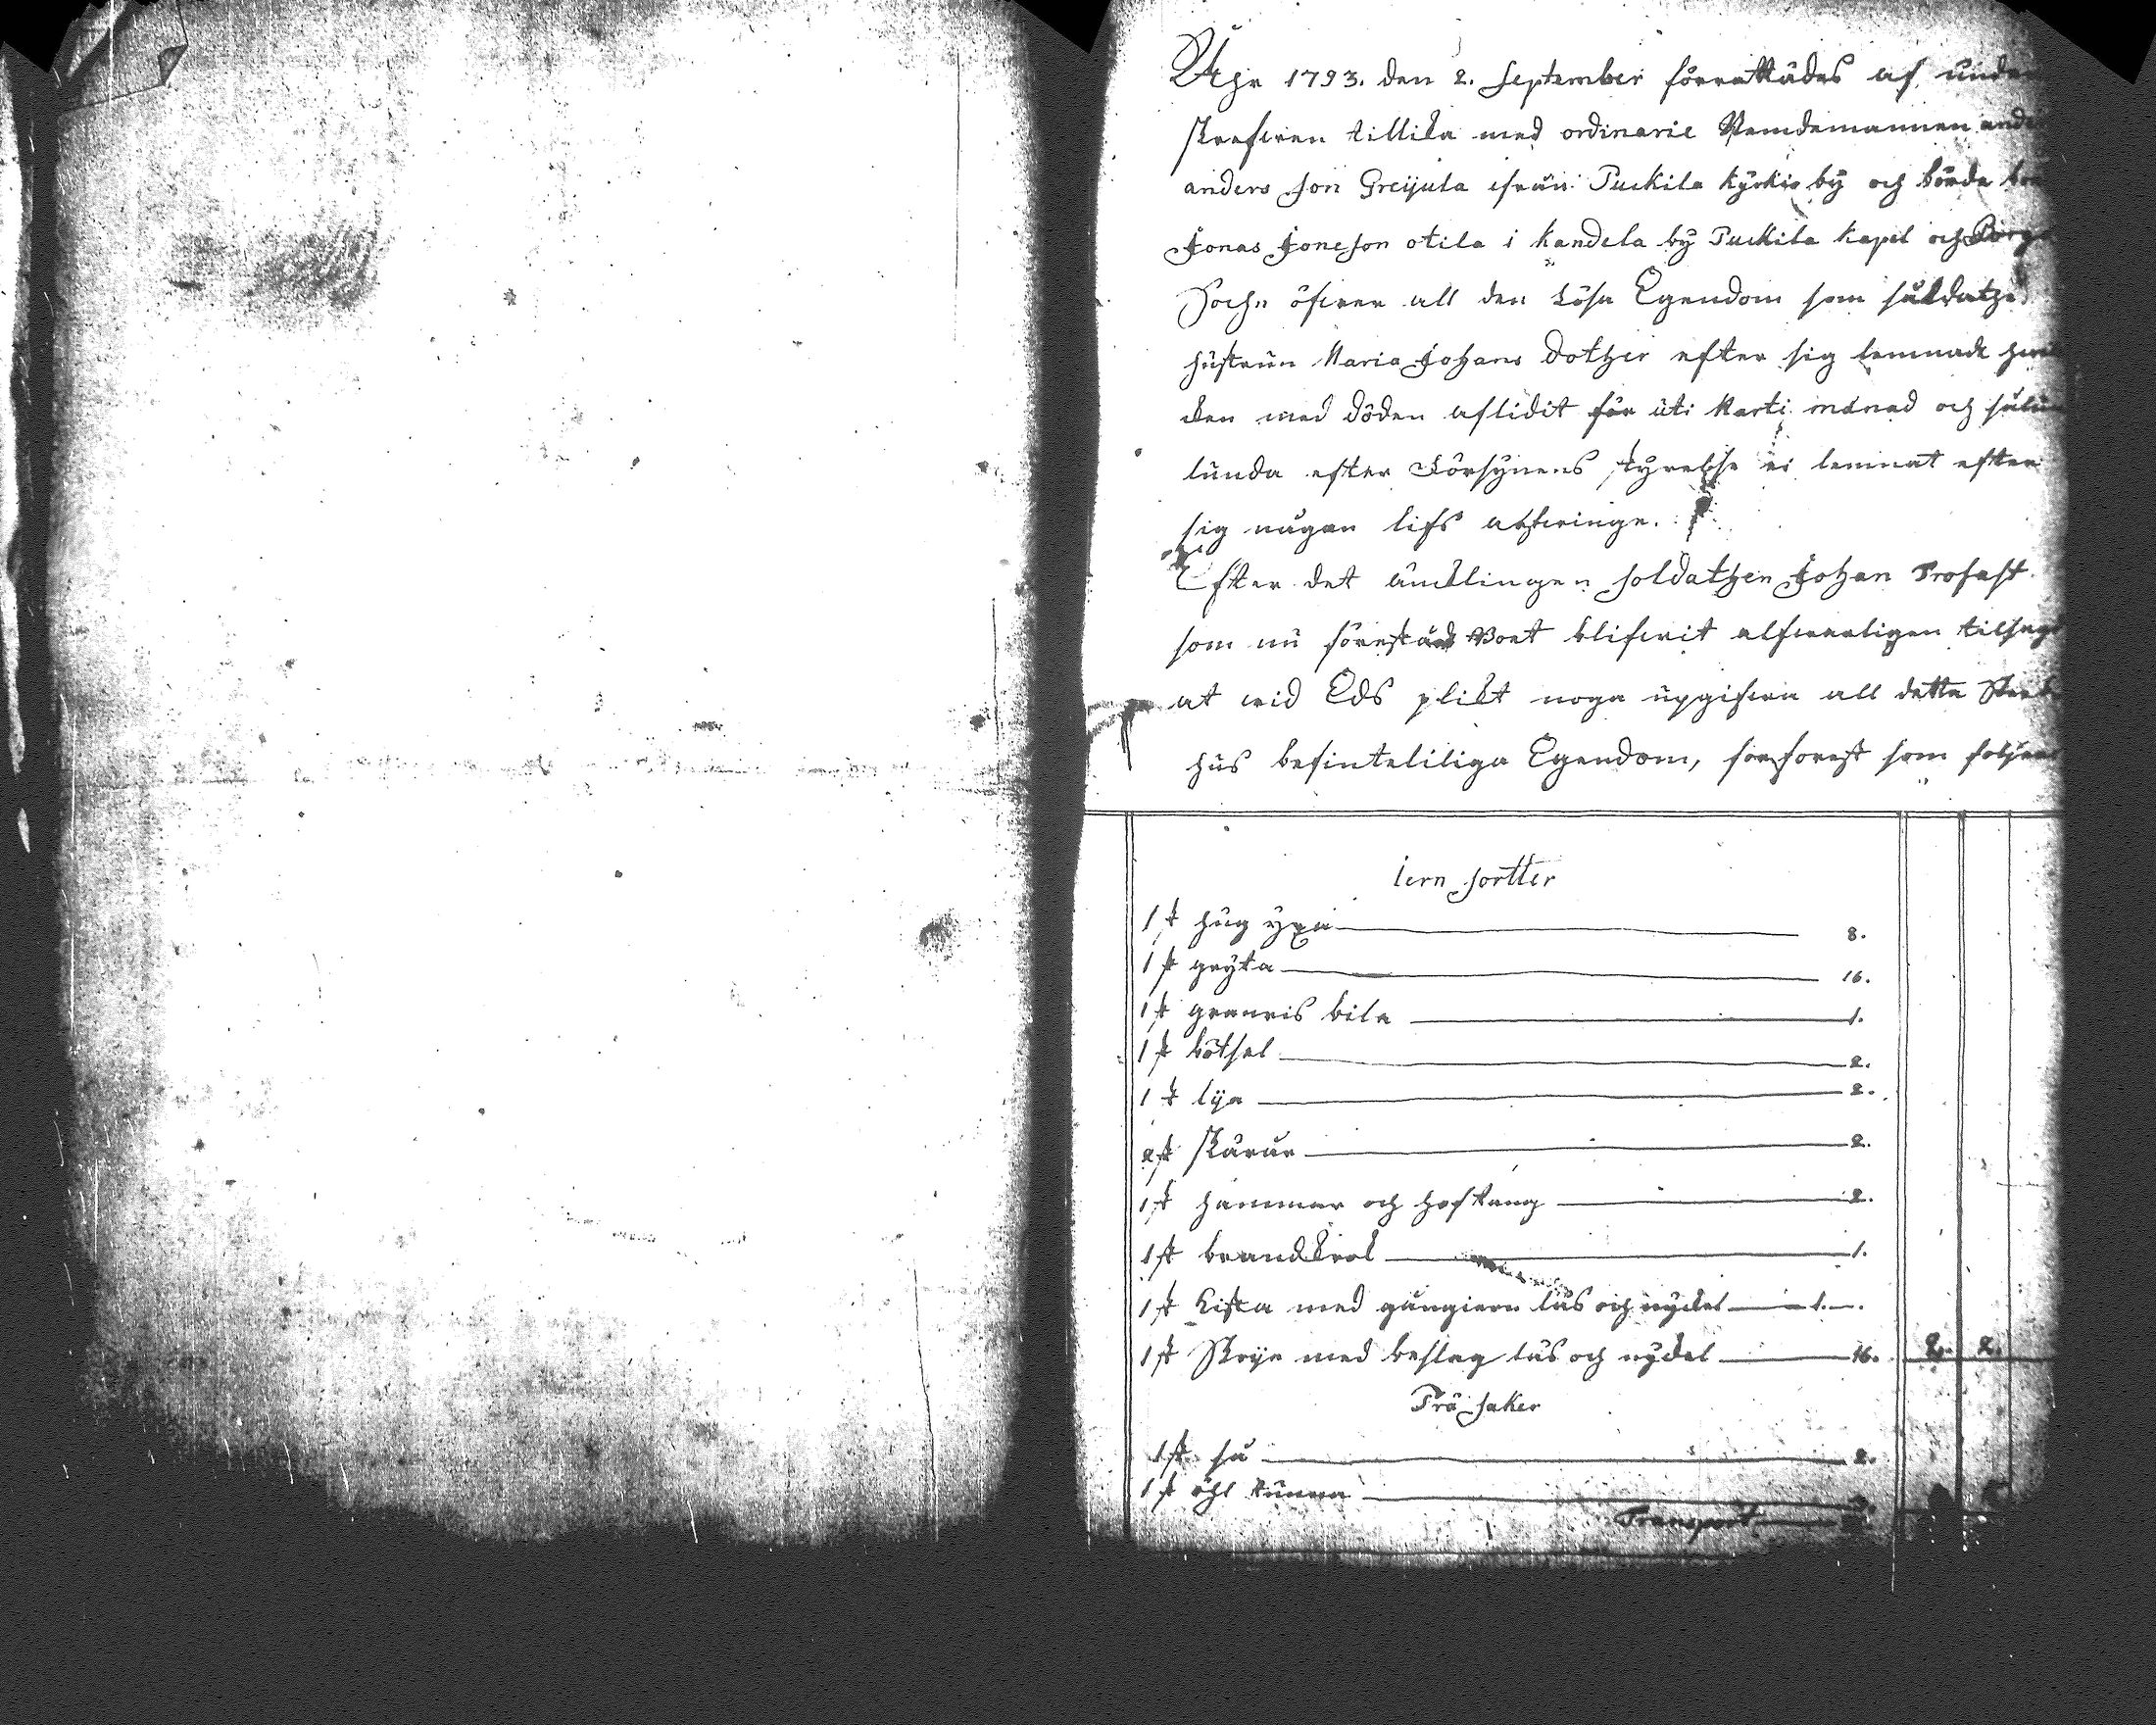 Åhr 1793. den 2. September förrettades af under
skrefwen tillika med ordinarie Nemdemannen
anders son Greijula ifrån Puckila kyrkio by och bonde
Jonas Joneson otila i Kandela by Puckila Kapel och Borgo
Sochn öfwer all den Lösa Egendom som saldathz
hustrun Maria Johans Dother efter sig lemnade
ken med döden aflidit för uti Marti månad och
lunda efter Försynens styrelse ei lemnat efter
sig någon lifs arfwinge.
Efter det änklingen soldathen Johan Profast
som nu förestår Boet blifwit alfwarligen tilsagt
at wid Eds plikt noga upgifwa all detta Sterb
hus befinteliliga Egendom, som följer
iern sortter
1 st hug yxa 8.
1 st gryta 16.
1 st granris bila 1.
1 st bötsel 2.
1 st lija 2.
2 st Skäror 2.
1 st hammar och hoftang 2.
1 st brandkrok 1.
1 st Kista med gångiern lås och nyckel 1.
1 st Skrijn med beslag lås och nyckel 16. 2. 2.
Trä saker
1 st så 2.
1 st öhl tunna
Transport